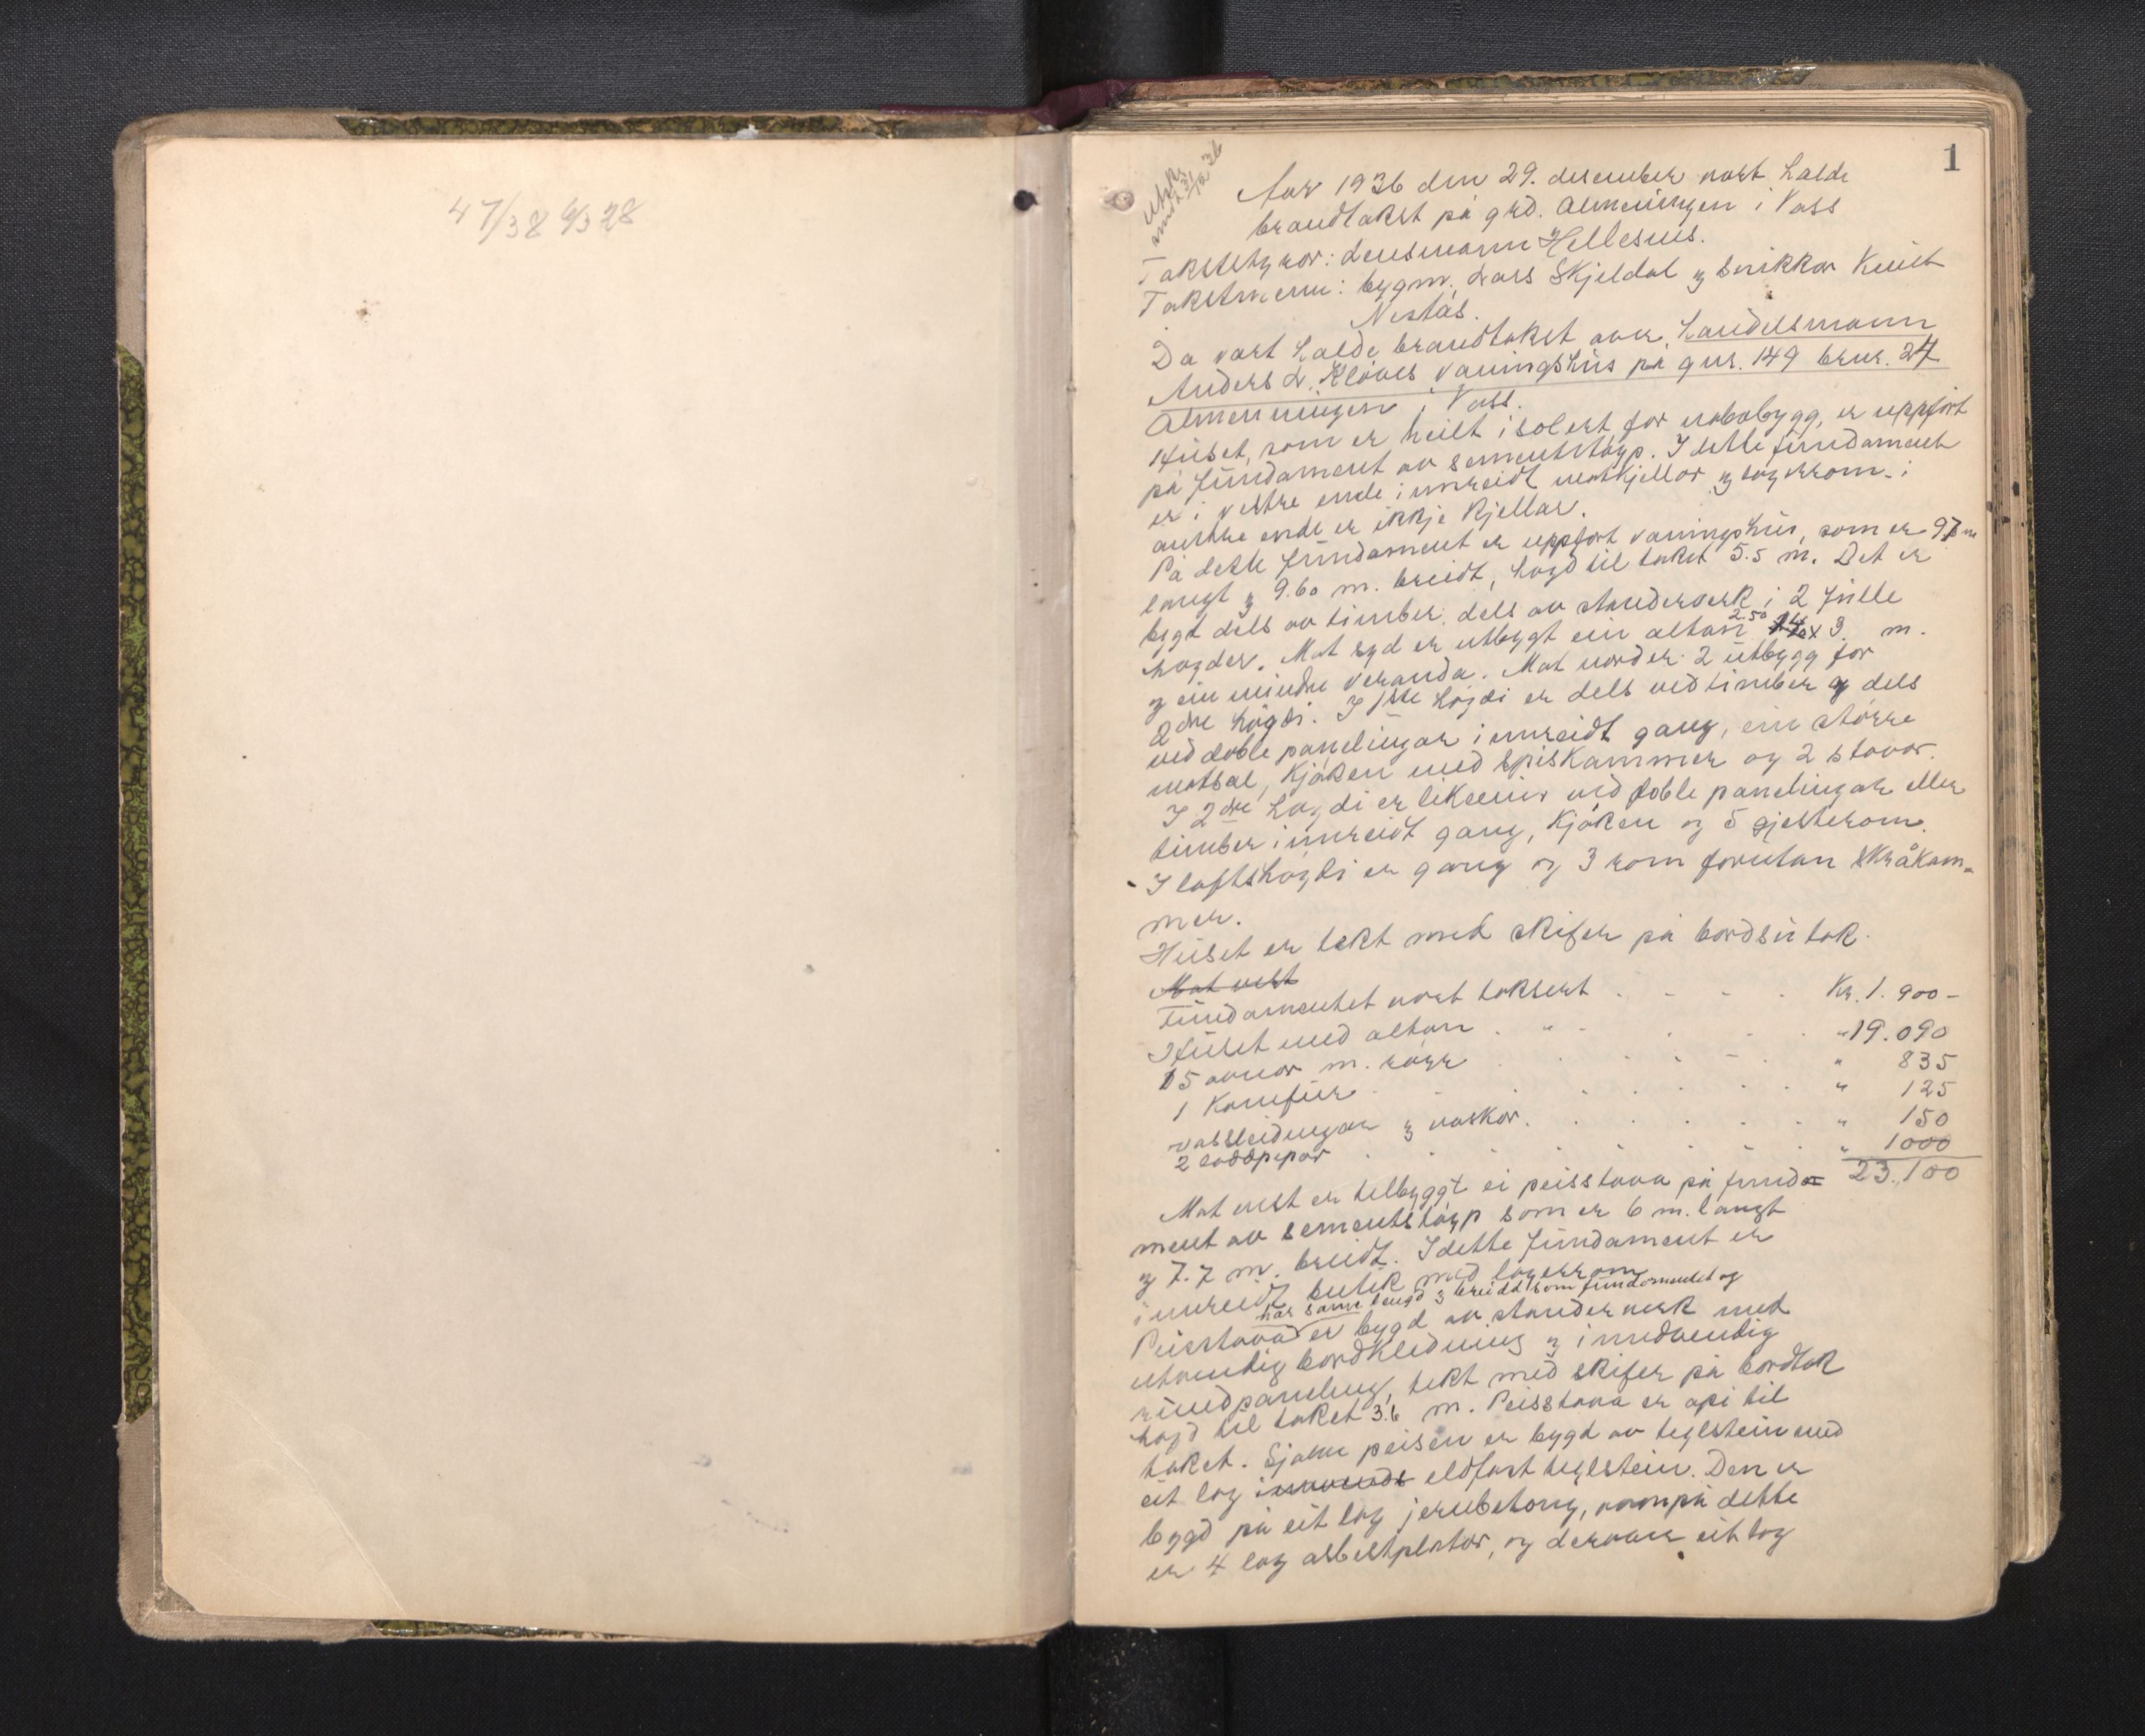 47/38 6/3 28
1
Utskr.
sendt 31/12 36
Aar 1936 den 29. desember vart halde
brandtakst på grd. Almenningen i Voss
Takstetyrar: Lensmann Hellesnes.
Takstmenn: bygm. Lars Skjeldal og snikkar Knut
Nestås.
Da vart halde brandtakst over handelsmann
Anders L. Kløves vaningshus på gnr. 149 brnr. 24
Almenningen i Voss.
Huset, som er heilt isolert for nabobygg, er uppført
på fundament av sementstøyp. I dette fundament
er i vestre ende innreidt matkjellar og lagerrom. i
austre ende er ikkje kjellar.
På dette fundament er uppført vaningshus, som er 97 m
langt og 9.60 m. breidt, høgd til taket 5.5 m. Det er
bygt dels av timber, dels av standerverk i 2 fulle
høgder. Mot syd er utbygt ein altan 2.50 x 3 m.
og ein mindre veranda. Mot nord er 2 utbygg for
2dre høgdi. I 1ste høgdi er dels ved timber og dels
ved doble panelingar innreidt gang, ein større
matsal, kjøken med spiskammer og 2 stovor.
I 2dre høgdi er likeeins ved doble panelingar eller
timber innreidt gang, kjøken og 5 gjesterom.
I loftshøgdi er gang og 3 rom forutan skråkam-
mer.
Huset er tekt med skifer på bordsutak.
Mot vest
Fundamentet vart taksert . - - . Kr. 1.900 -
Huset med altan . " . . . . " 19.090
15 omnar m. røyr . . . - . " 835
1 Komfur . . . . . . " 125
Vassleidningar og vaskar. . . . . . " 150
2 loddpipor . . . . . . " 1000
23.100
Mot vest er tilbyggt ei peisstova på funda-
ment av sementstøyp som er 6 m. langt
og 7.7 m. breidt. I dette fundament er
innreidt butik med lagerrom
har same lengd og breidd som fundamentet og
Peisstova er bygd av standerverk med
utvendig bordkledning og innvendig
rundpaneling, tekt med skifer på bordtak
høgd til taket 3.6 m. Peisstova er opi til
taket. Sjølve peisen er bygd av teglstein med
eit lag innvends eldfast teglstein. Den er
bygd på eit lag jernbetong, ovanpå dette
er 4 lag asbestplator, og derover eit lag